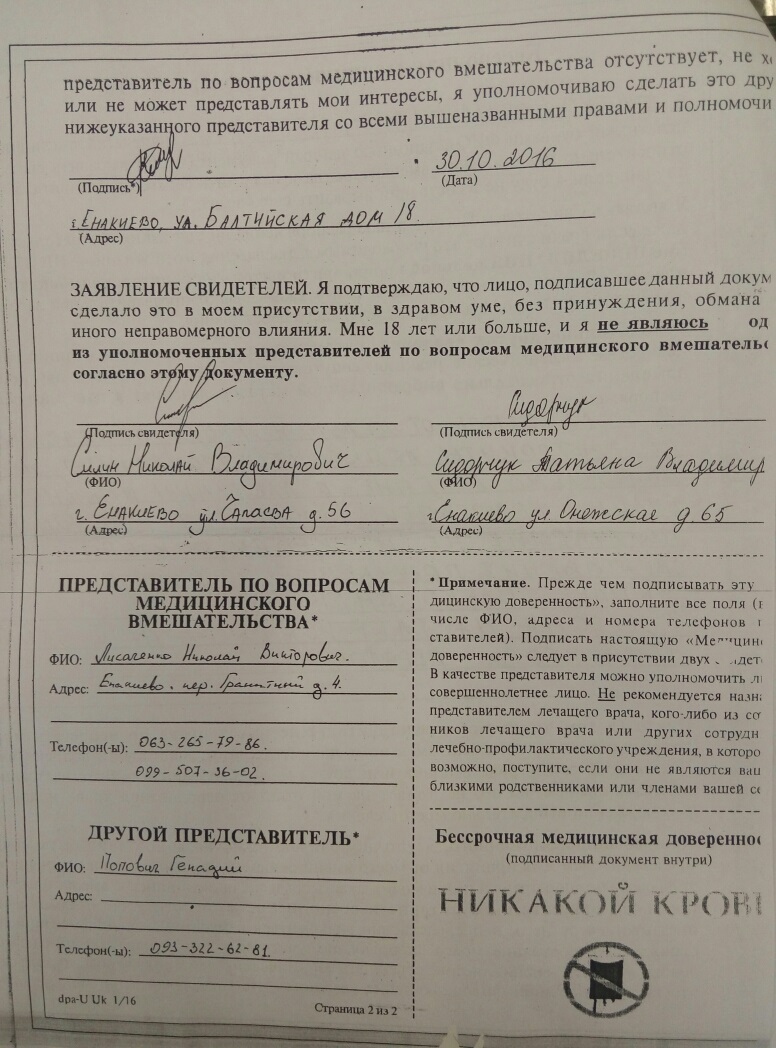 представитель по вопросам медицинского вмешательства отсутствует, не х
или не может представлять мои интересы, я уполномочиваю сделать это дру
нижеуказанного представителя со всеми вышеназванными правами и полномочи
30.10.2016
(Подпись*)
(Дата)
г. Енакиево, ул. Балтийская дом 18
(Адрес)
ЗАЯВЛЕНИЕ СВИДЕТЕЛЕЙ. Я подтверждаю, что лицо, подписавшее данный докум
сделало это в моем присутствии, в здравом уме, без принуждения, обмана
иного неправомерного влияния. Мне 18 лет или больше, и я не являюсь од
из уполномоченных представителей по вопросам медицинского вмешательс
согласно этому документу.
(Подпись свидетеля)
Силин Николай Владимирович
(ФИО)
г. Енакиево ул. Чапаева д. 56
(Адрес)
Сидорчук
(Подпись свидетеля)
Сидорчук Татьяна Владимир
(ФИО)
г. Енакиево ул. Онежская д. 65
(Адрес)
ПРЕДСТАВИТЕЛЬ ПО ВОПРОСАМ
МЕДИЦИНСКОГО
ВМЕШАТЕЛЬСТВА*
ФИО: Лисаченко Николай Викторович.
Адрес: Енакиево. пер. Гранитный д. 4.
Телефон(-ы): 063-265-79-86.
099-507-36-02.
ДРУГОЙ ПРЕДСТАВИТЕЛЬ*
ФИО: Попович Генадий
Адрес:
Телефон(-ы): 093-322-62-81.
dpa-U Uk 1/16
Страница 2 из 2
*Примечание. Прежде чем подписывать эту
дицинскую доверенность», заполните все поля (в
числе ФИО, адреса и номера телефонов
ставителей). Подписать настоящую «Медицин
доверенность» следует в присутствии двух
В качестве представителя можно уполномочить л
совершеннолетнее лицо. Не рекомендуется назн
представителем лечащего врача, кого-либо из со
ников лечащего врача или других сотрудн
лечебно-профилактического учреждения, в которо
возможно, поступите, если они не являются ваш
близкими родственниками или членами вашей се
Бессрочная медицинская доверенно
(подписанный документ внутри)
НИКАКОЙ КРОВИ